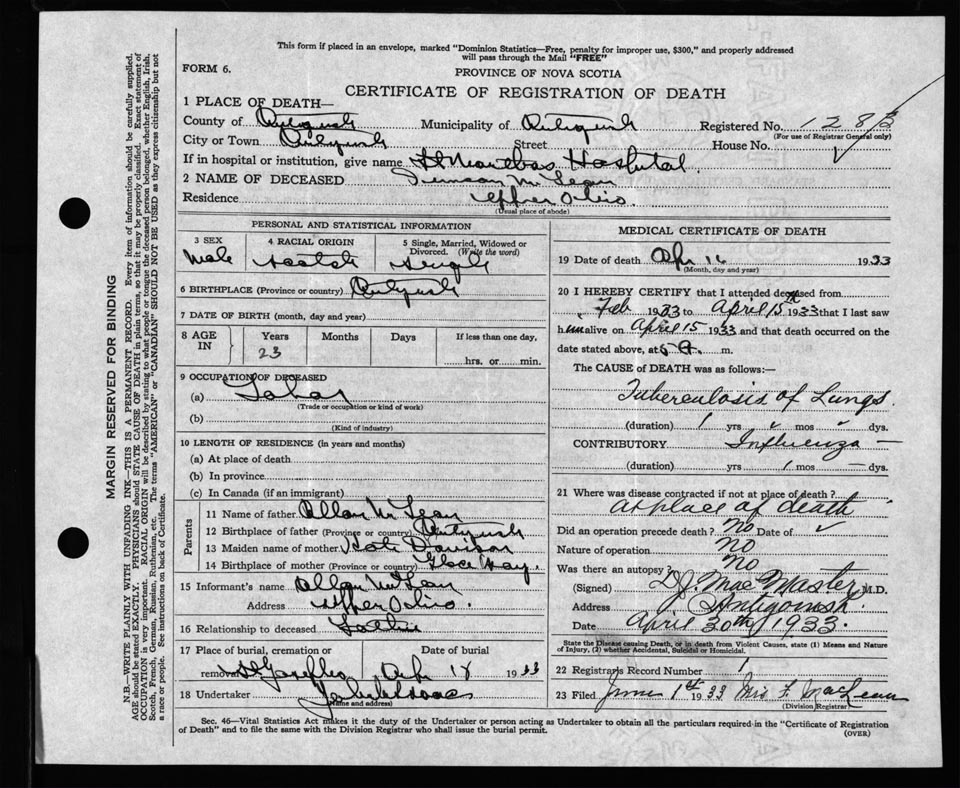 This form if placed in an envelope, marked "Dominion Statistics—Free, penalty for improper use, $300," and properly addressed
will pass through the Mail "FREE"
FORM 6.
PROVINCE OF NOVA SCOTIA
CERTIFICATE OF REGISTRATION OF DEATH
1 PLACE OF DEATH—
County of Antigonish Municipality of Antigonish Registered No. 128
(For use of Registrar General only)
City or Town Antigonish Street House No.
If in hospital or institution, give name St Marthas Hospital
2 NAME OF DECEASED
Residence Upper Ohio.
(Usual place of abode)
PERSONAL AND STATISTICAL INFORMATION
3 SEX Male
4 RACIAL ORIGIN Scotch
5 Single, Married, Widowed or Divorced. (Write the word) Single
6 BIRTHPLACE (Province or country) Antigonish
7 DATE OF BIRTH (month, day and year)
8 AGE IN Years Months Days If less than one day,
23 hrs. or min.
9 OCCUPATION OF DECEASED
(a) Labor
(Trade or occupation or kind of work)
(b)
(Kind of industry)
10 LENGTH OF RESIDENCE (in years and months)
(a) At place of death
(b) In province
(c) In Canada (if an immigrant)
Parents
11 Name of father Allan McLean
12 Birthplace of father (Province or country) Antigonish
13 Maiden name of mother Kate
14 Birthplace of mother (Province or country) Glace Bay.
15 Informant's name Allan McLean
Address Upper Ohio.
16 Relationship to deceased Father
17 Place of burial, cremation or Date of burial
removal St Josephs Apr 18 1933
18 Undertaker
(Name and address)
MEDICAL CERTIFICATE OF DEATH
19 Date of death Apr 16 1933
(Month, day and year)
20 I HEREBY CERTIFY that I attended deceased from
Feb 1933 to April 15th 1933 that I last saw
him alive on April 15 1933 and that death occurred on
date stated above, at 5 a. m.
The CAUSE of DEATH was as follows:—
Tuberculosis of Lungs.
(duration) 1 yrs mos dys.
CONTRIBUTORY Influenza —
(duration) yrs 1 mos — dys.
21 Where was disease contracted if not at place of death?
At place of death
Did an operation precede death? No Date of
Nature of operation No
Was there an autopsy? No —
(Signed) D.J. MacMaster M.D.
Address Antigonish.
Date April 30th, 1933.
State the Disease causing Death, or in death from Violent Causes, state (1) Means and Nature
of Injury, (2) whether Accidental, Suicidal or Homicidal.
22 Registrars Record Number 1
23 Filed June 1st 1933 Mrs F. MacLean
(Division Registrar)
Sec. 46—Vital Statistics Act makes it the duty of the Undertaker or person acting as Undertaker to obtain all the particulars required in the "Certificate of Registration
of Death" and to file the same with the Division Registrar who shall issue the burial permit.
(OVER)
MARGIN RESERVED FOR BINDING
N.B.—WRITE PLAINLY WITH UNFADING INK—THIS IS A PERMANENT RECORD. Every item of information should be carefully supplied.
AGE should be stated EXACTLY. PHYSICIANS should STATE CAUSE OF DEATH in plain terms, so that it may be properly classified. Exact statement of
OCCUPATION is very important. RACIAL ORIGIN will be described by stating to what people or tongue the deceased person belonged, whether English, Irish,
Scotch, French, German, Russian, Ruthenian, etc. The terms "AMERICAN" or "CANADIAN" SHOULD NOT BE USED as they express citizenship but not
a race or people. See instructions on back of Certificate.